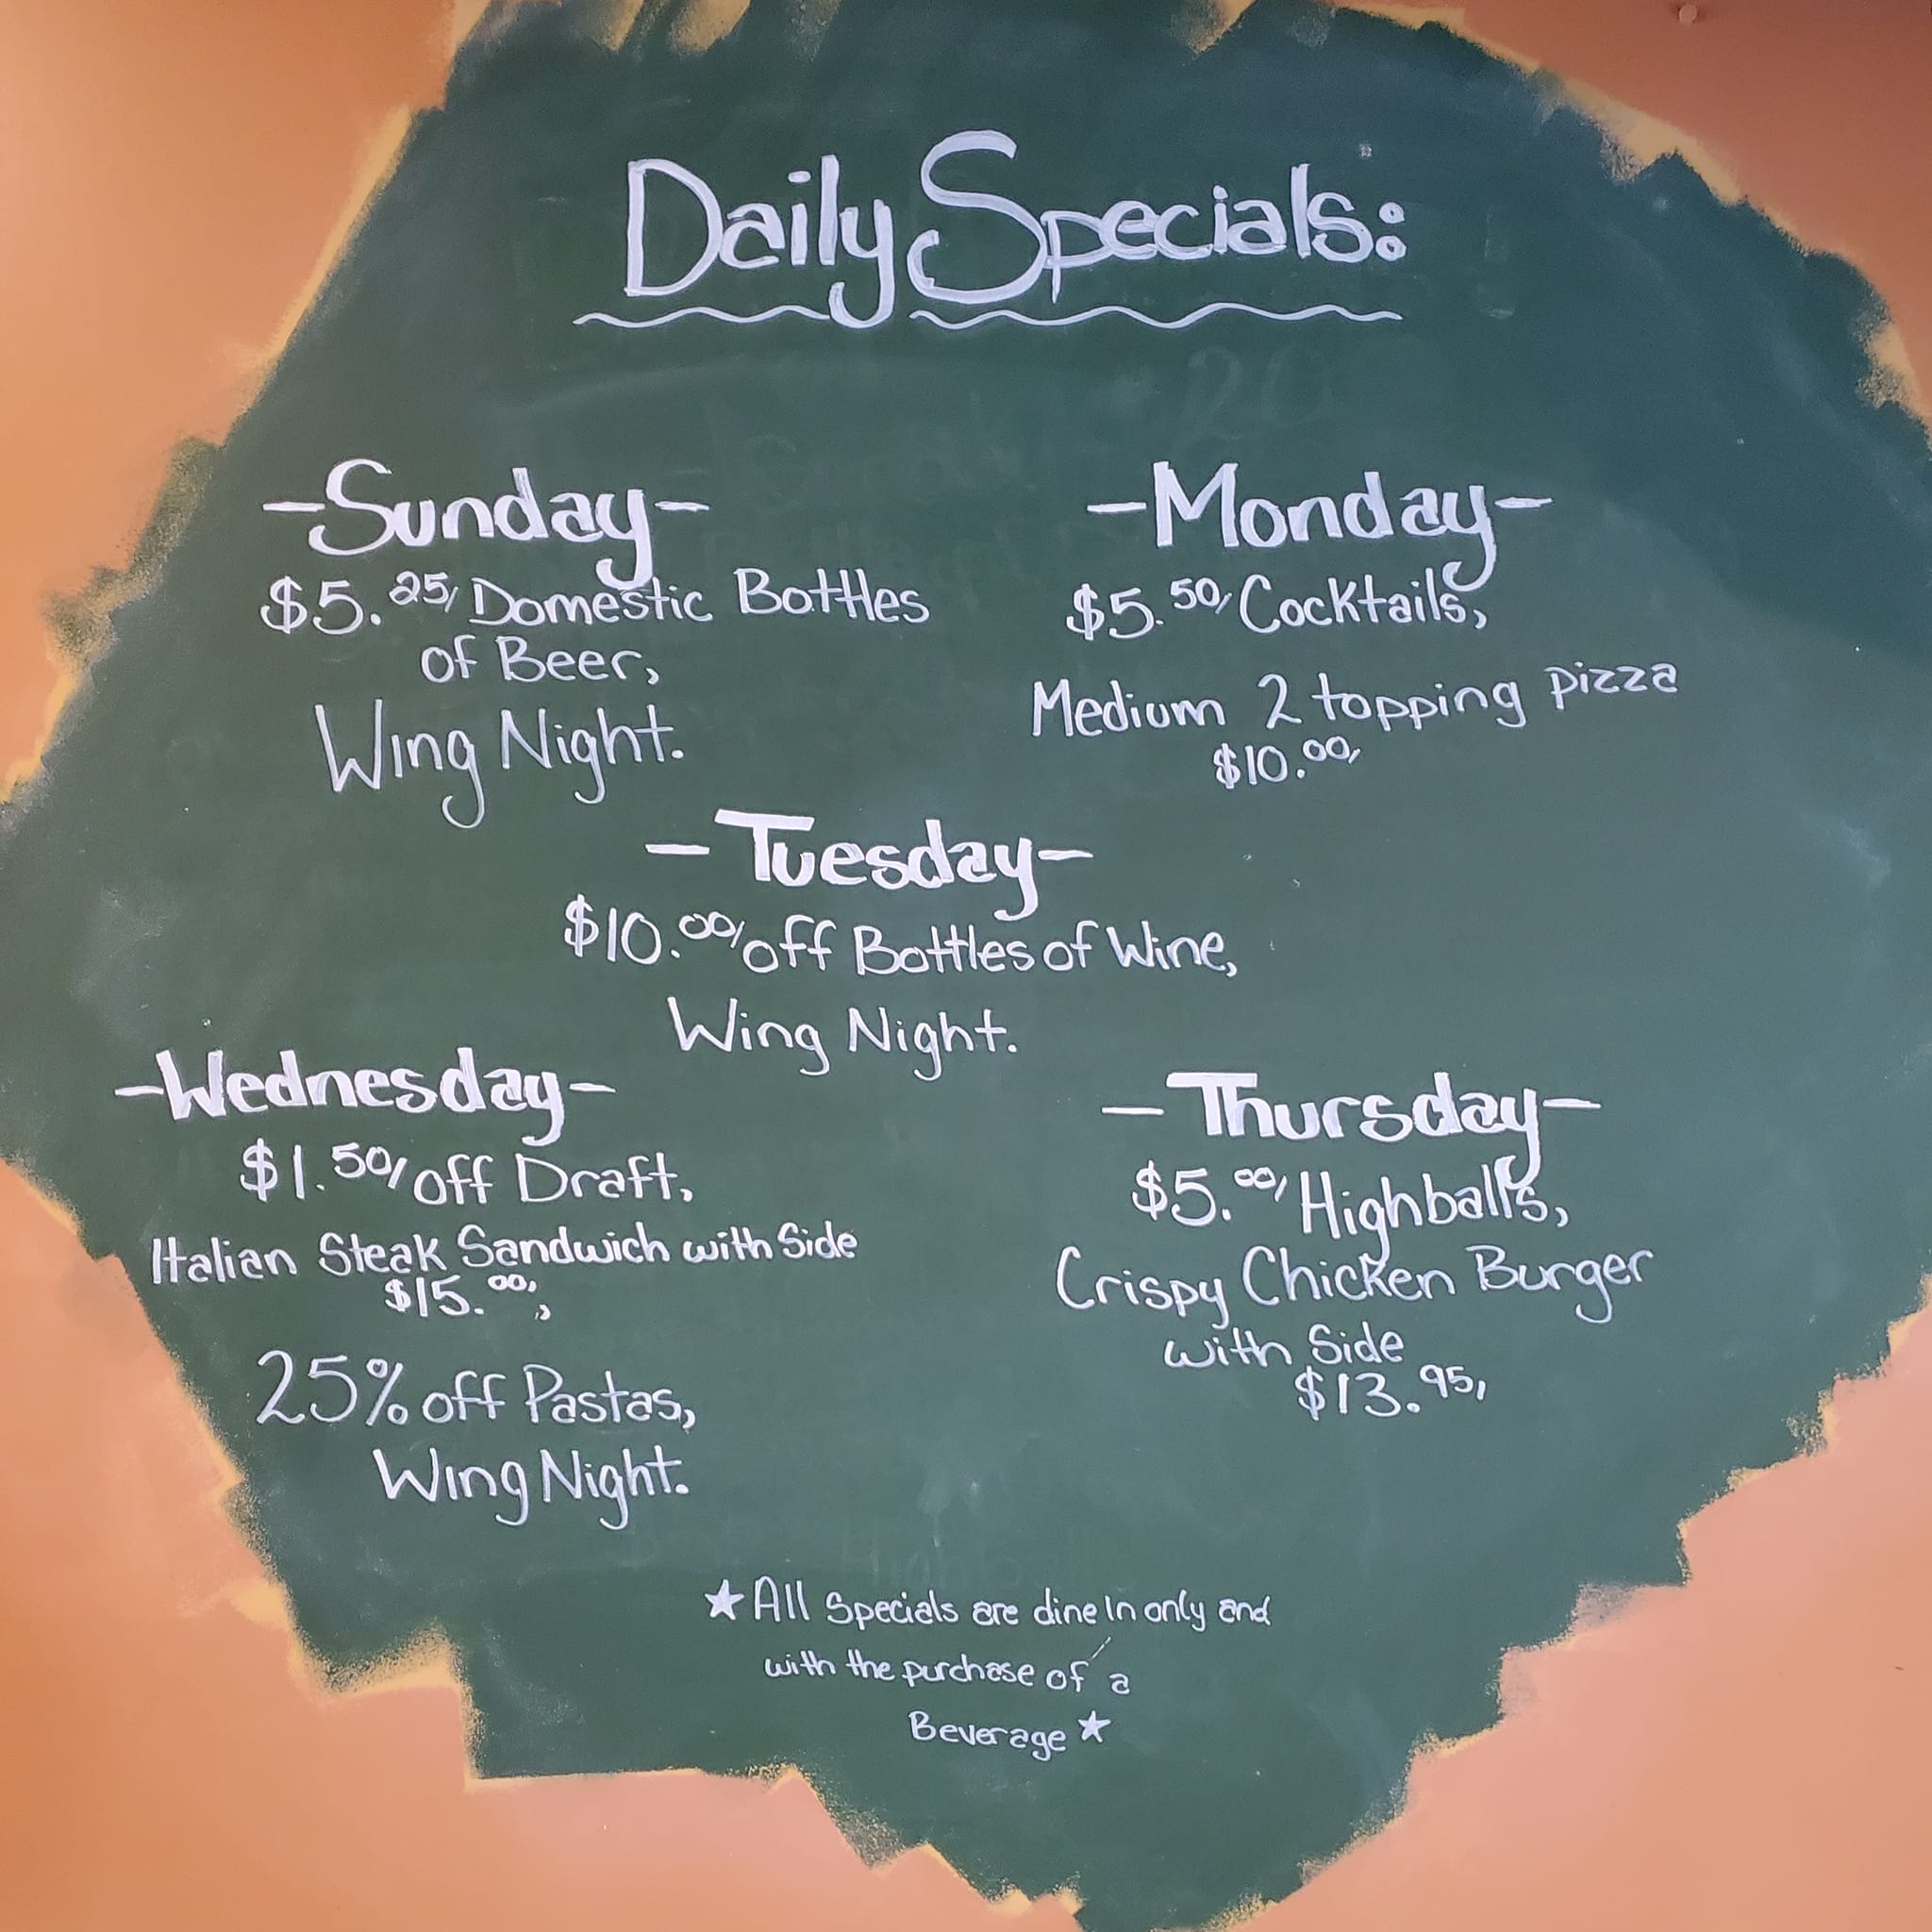 Daily Specials:
-Sunday-
$5.25, Domestic Bottles
of Beer,
Wing Night.
-Monday-
$5.50, Cocktails,
Medium 2 topping pizza
$10.00,
-Tuesday-
$10.00, off Bottles of Wine,
Wing Night.
-Wednesday-
$1.50, off Draft,
Italian Steak Sandwich with Side
$15.00,,
25% off Pastas,
Wing Night.
-Thursday-
$5.00, Highballs,
Crispy Chicken Burger
with Side
$13.95,
★ All Specials are dine In only and
with the purchase of a
Beverage ★